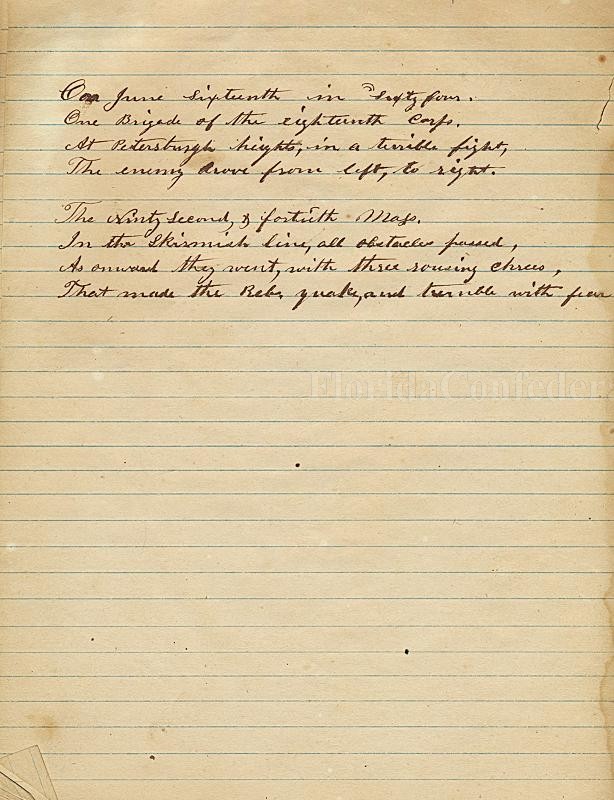 On June Sixteenth in Sixty four.
One Brigade of the eighteenth Corps.
At Petersburgh heights, in a terrible fight,
The enemy drove from left, to right.
The Ninty Second, & fortieth Mass.
In the Skirmish line, all obstacles passed,
As onward they went, with three rousing cheers,
That made the Rebs, quake, and tremble with fear
FloridaConfeder